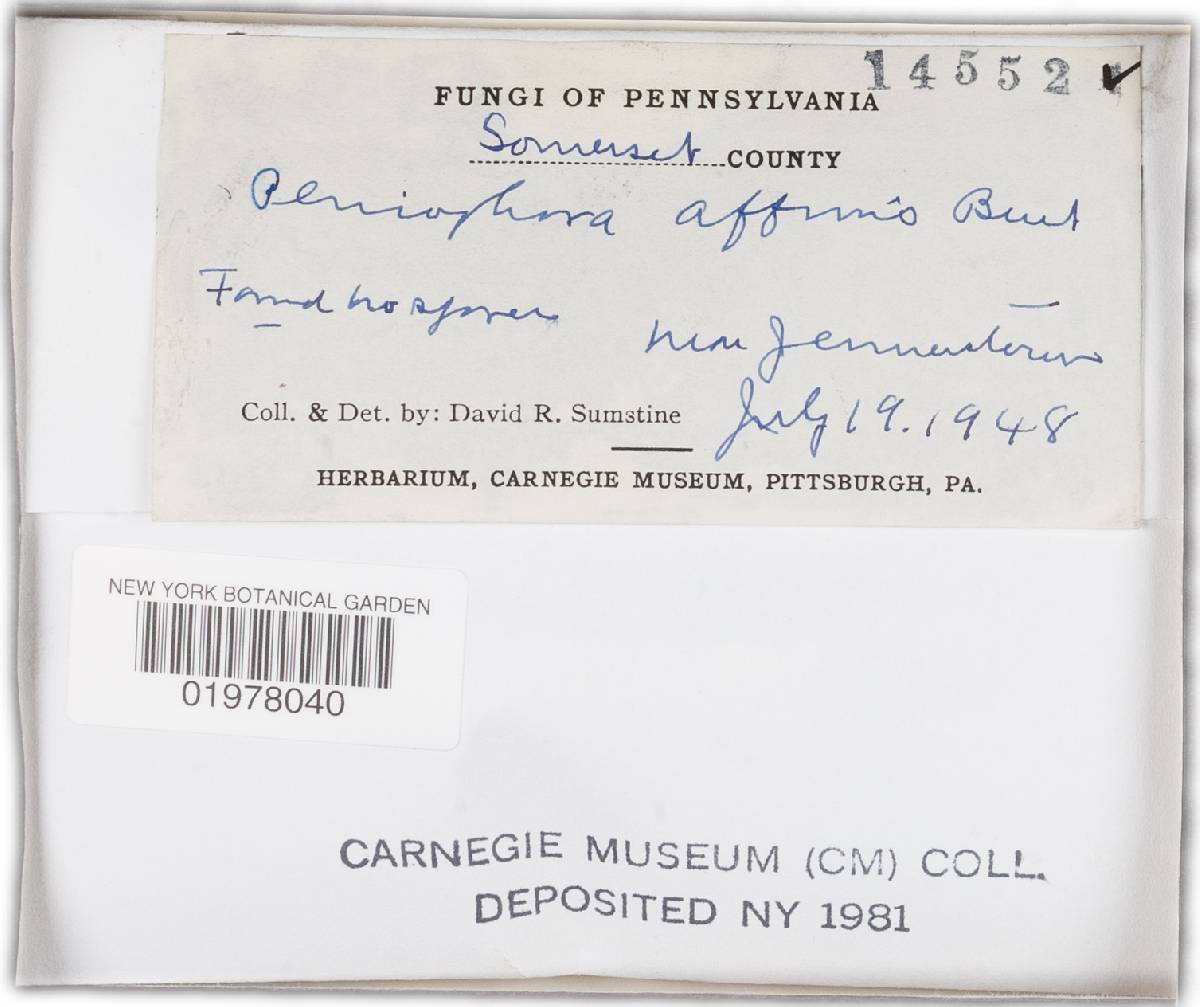 14552
FUNGI OF PENNSYLVANIA
Somerset COUNTY
Peniophora affinis Burt
Found no spores
near Jennerstown
Coll. & Det. by: David R. Sumstine
July 19. 1948
HERBARIUM, CARNEGIE MUSEUM, PITTSBURGH, PA.
NEW YORK BOTANICAL GARDEN
01978040
CARNEGIE MUSEUM (CM) COLL.
DEPOSITED NY 1981